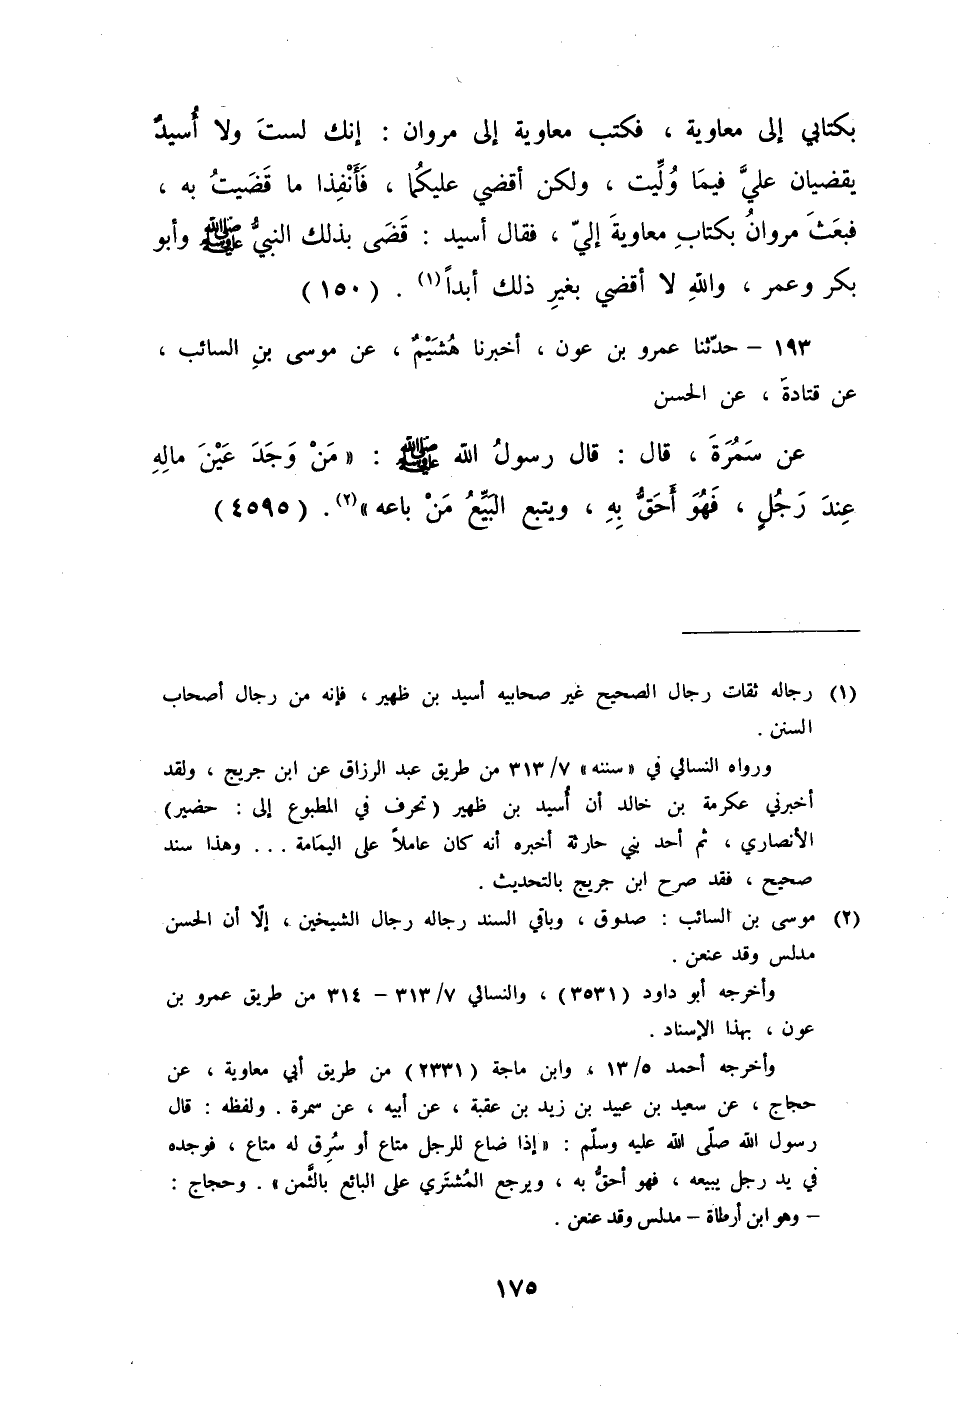 بكتابي إلى معاوية ، فكتب معاوية إلى مروان : إنك لستَ ولا أُسيدٌ
يقضيان عليَّ فيمَا وُلِّيت ، ولكن أقضي عليكُما ، فَأَنْفِذا ما قضَيتُ به ،
فبعَثَ مروانُ بكتابِ معاويةَ إليّ ، فقال أسيد : قَضَى بذلك النبيُّ ﷺ وأبو
بكر وعمر ، واللهِ لا أقضي بغيرِ ذلك أبداً(١) . (١٥٠)
١٩٣ – حدّثنا عمرو بن عون ، أخبرنا هُشَيْمٌ ، عن موسى بنِ السائب ،
عن قتادةَ ، عن الحسن
عن سَمُرَةَ ، قال : قال رسولُ الله ﷺ : «مَنْ وَجَدَ عَيْنَ مالِهِ
عِندَ رَجُلٍ ، فَهُوَ أَحَقُّ بِهِ ، ويتبع البَيِّعُ مَنْ باعه»(٢). (٤٥٩٥)
(١) رجاله ثقات رجال الصحيح غير صحابيه أسيد بن ظهير ، فإنه من رجال أصحاب
السنن .
ورواه النسائي في «سننه» ٣١٣/٧ من طريق عبد الرزاق عن ابن جريج ، ولقد
أخبرني عكرمة بن خالد أن أُسيد بن ظهير (تحرف في المطبوع إلى : حضير)
الأنصاري ، ثم أحد بني حارثة أخبره أنه كان عاملاً على اليمَامة ... وهذا سند
صحيح ، فقد صرح ابن جريج بالتحديث .
(٢) موسى بن السائب : صدوق ، وباقي السند رجاله رجال الشيخين ، إلّا أن الحسن
مدلس وقد عنعن .
وأخرجه أبو داود (٣٥٣١) ، والنسائي ٣١٣/٧ – ٣١٤ من طريق عمرو بن
عون ، بهذا الإسناد .
وأخرجه أحمد ١٣/٥ ، وابن ماجة (٢٣٣١) من طريق أبي معاوية ، عن
حجاج ، عن سعيد بن عبيد بن زيد بن عقبة ، عن أبيه ، عن سمرة . ولفظه : قال
رسول الله صلّى الله عليه وسلّم : «إذا ضاع للرجل متاع أو سُرِق له متاع ، فوجده
في يد رجل يبيعه ، فهو أحقُّ به ، ويرجع المُشتَري على البائع بالثَّمن» . وحجاج :
– وهو ابن أرطاة – مدلس وقد عنعن .
١٧٥